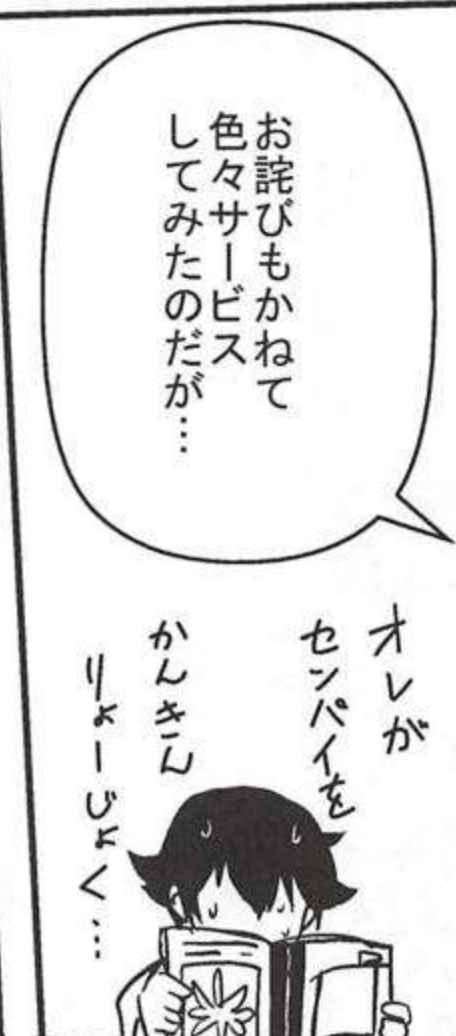 お詫びもかねて
色々サービス
してみたのだが…
オレが
センパイを
かんきん
りょーじょく…